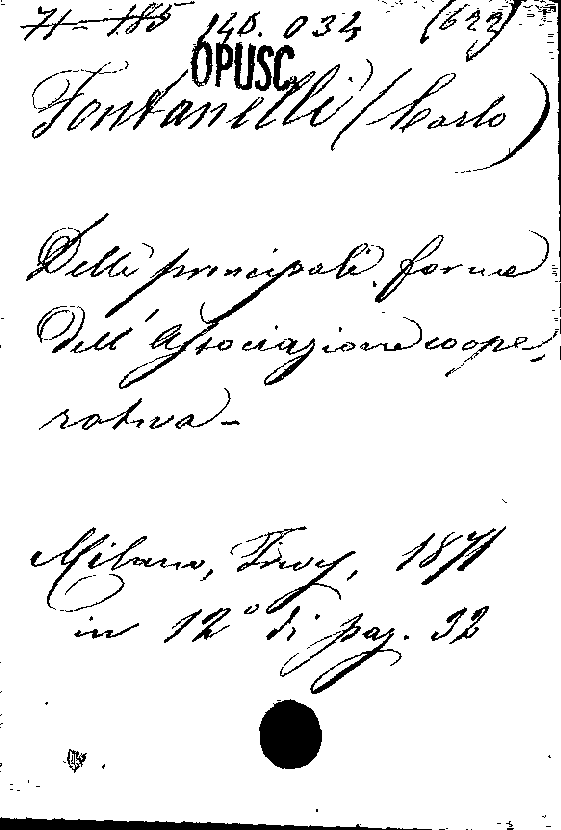 71-185 14D. 034 (622)
OPUSC.
Fontanelli (Carlo)
Delle principali forme
dell'Associazione coope-
rativa-
Milano, Treves, 1871
in 12° di pag. 32